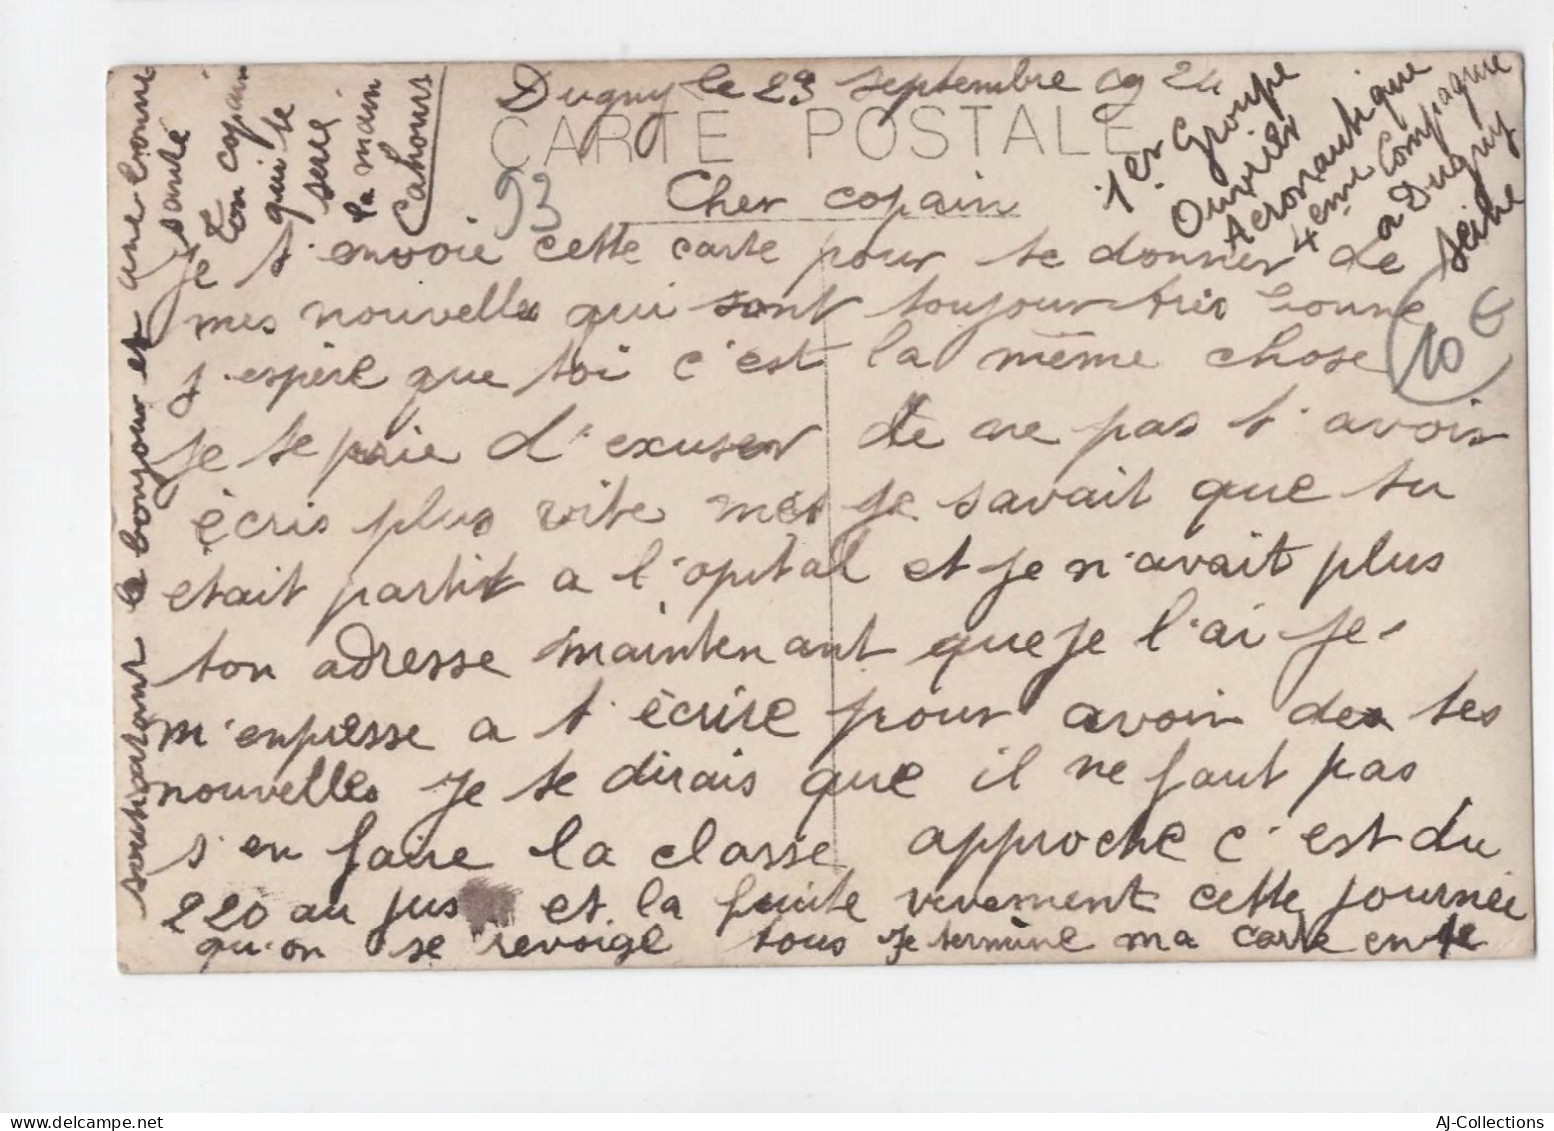 Dugny le 23 septembre 1924
CARTE POSTALE
1er Groupe
Ouvrier
Aeronautique
4ème Compagnie
a Dugny
Seine
93
Cher copain
Je t'envoie cette carte pour te donner de
mes nouvelles qui sont toujour très bonne
j'espère que toi c'est la même chose
10 €
je te prie d'exuser de ne pas t'avoir
écris plus vite mes je savait que tu
etait partit a l'opital et je n'avait plus
ton adresse maintenant que je l'ai je
m'enpresse a t'écrire pour avoir des tes
nouvelles Je te dirais que il ne faut pas
s'en faire la classe approche c'est du
220 au jus et la fuite vivement cette journée
qu'on se revoige tous Je termine ma carte en te
souhaitant le bonjour et une bonne
santé
Ton copain
qui te
seré
la main
Cahours
AJ-Collections